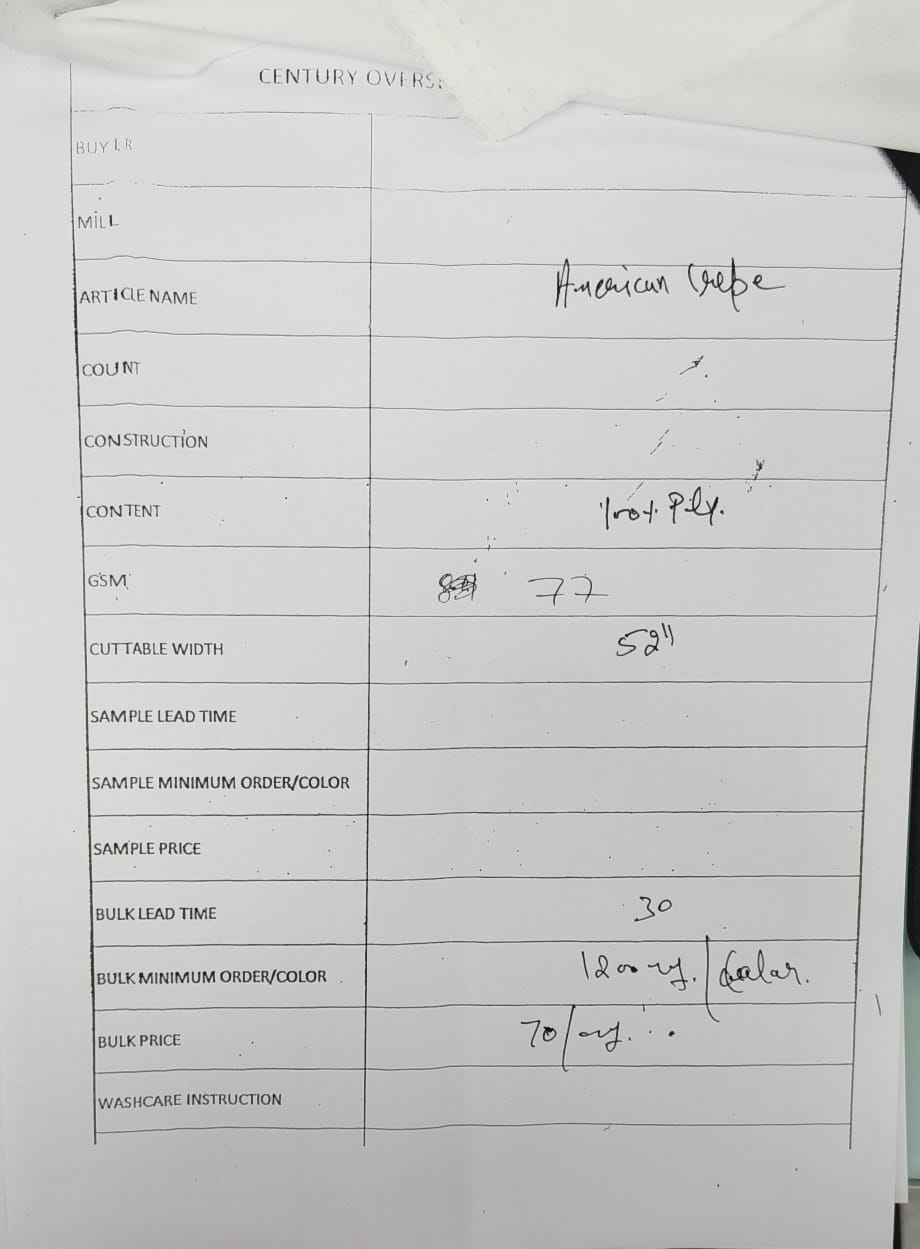 CENTURY OVERS
BUYER
MILL
ARTICLE NAME American Crepe
COUNT
CONSTRUCTION
CONTENT 100% Ply.
GSM 77
CUTTABLE WIDTH 52"
SAMPLE LEAD TIME
SAMPLE MINIMUM ORDER/COLOR
SAMPLE PRICE
BULK LEAD TIME 30
BULK MINIMUM ORDER/COLOR 1200 / Color.
BULK PRICE 70/
WASHCARE INSTRUCTION